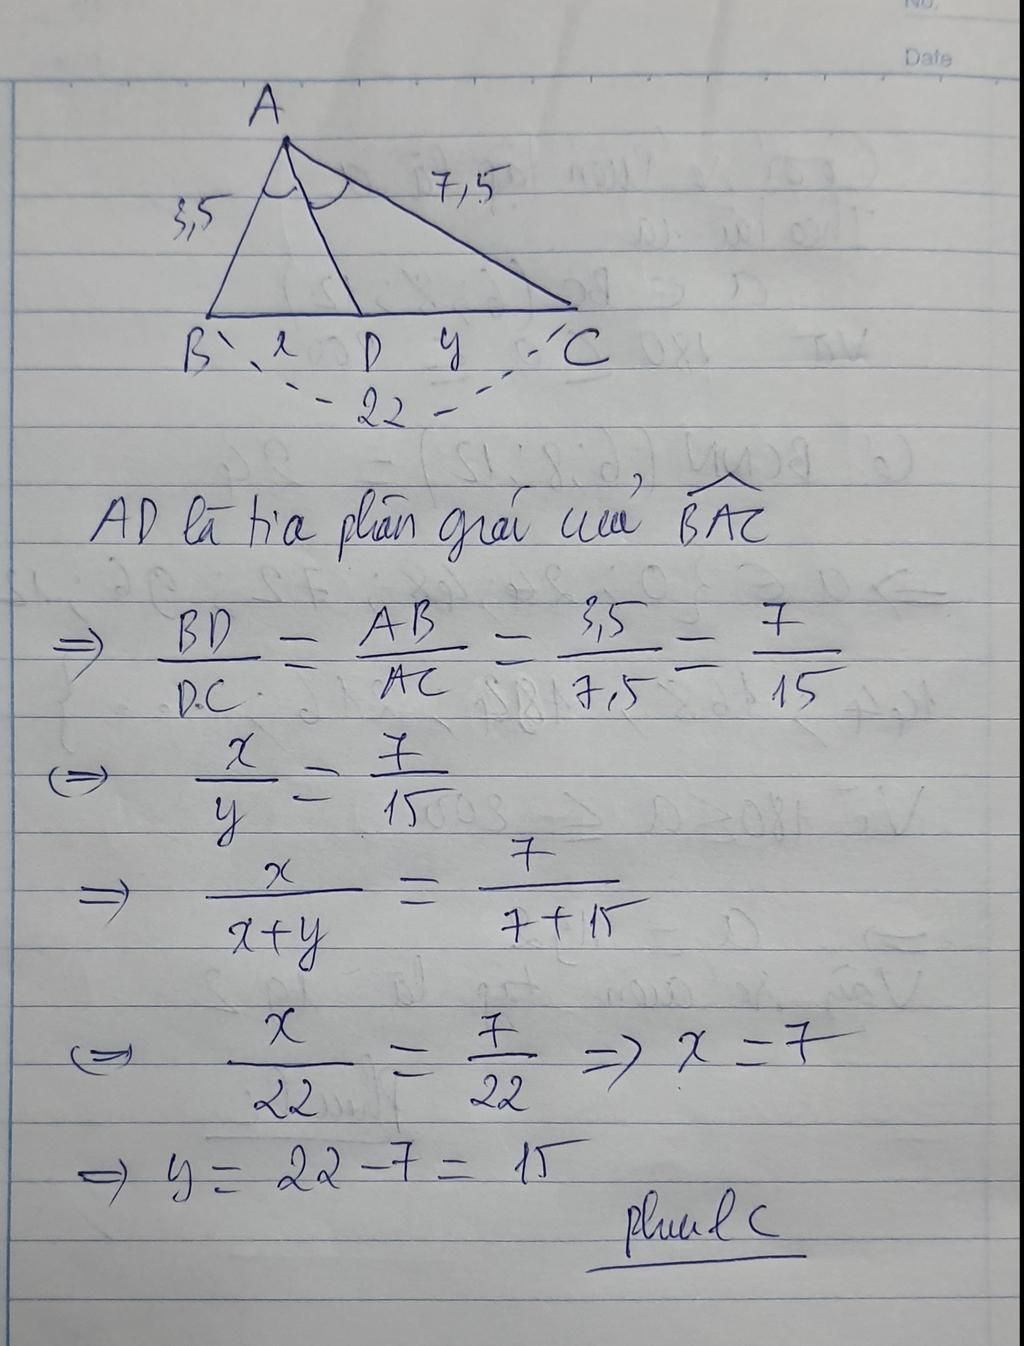 No.
Date
A
3,5
7,5
B x D y C
22
AD là tia phân giác của BAC
⇒ BD/DC = AB/AC = 3,5/7,5 = 7/15
⇔ x/y = 7/15
⇒ x/(x+y) = 7/(7+15)
⇔ x/22 = 7/22 ⇒ x = 7
⇒ y = 22 - 7 = 15